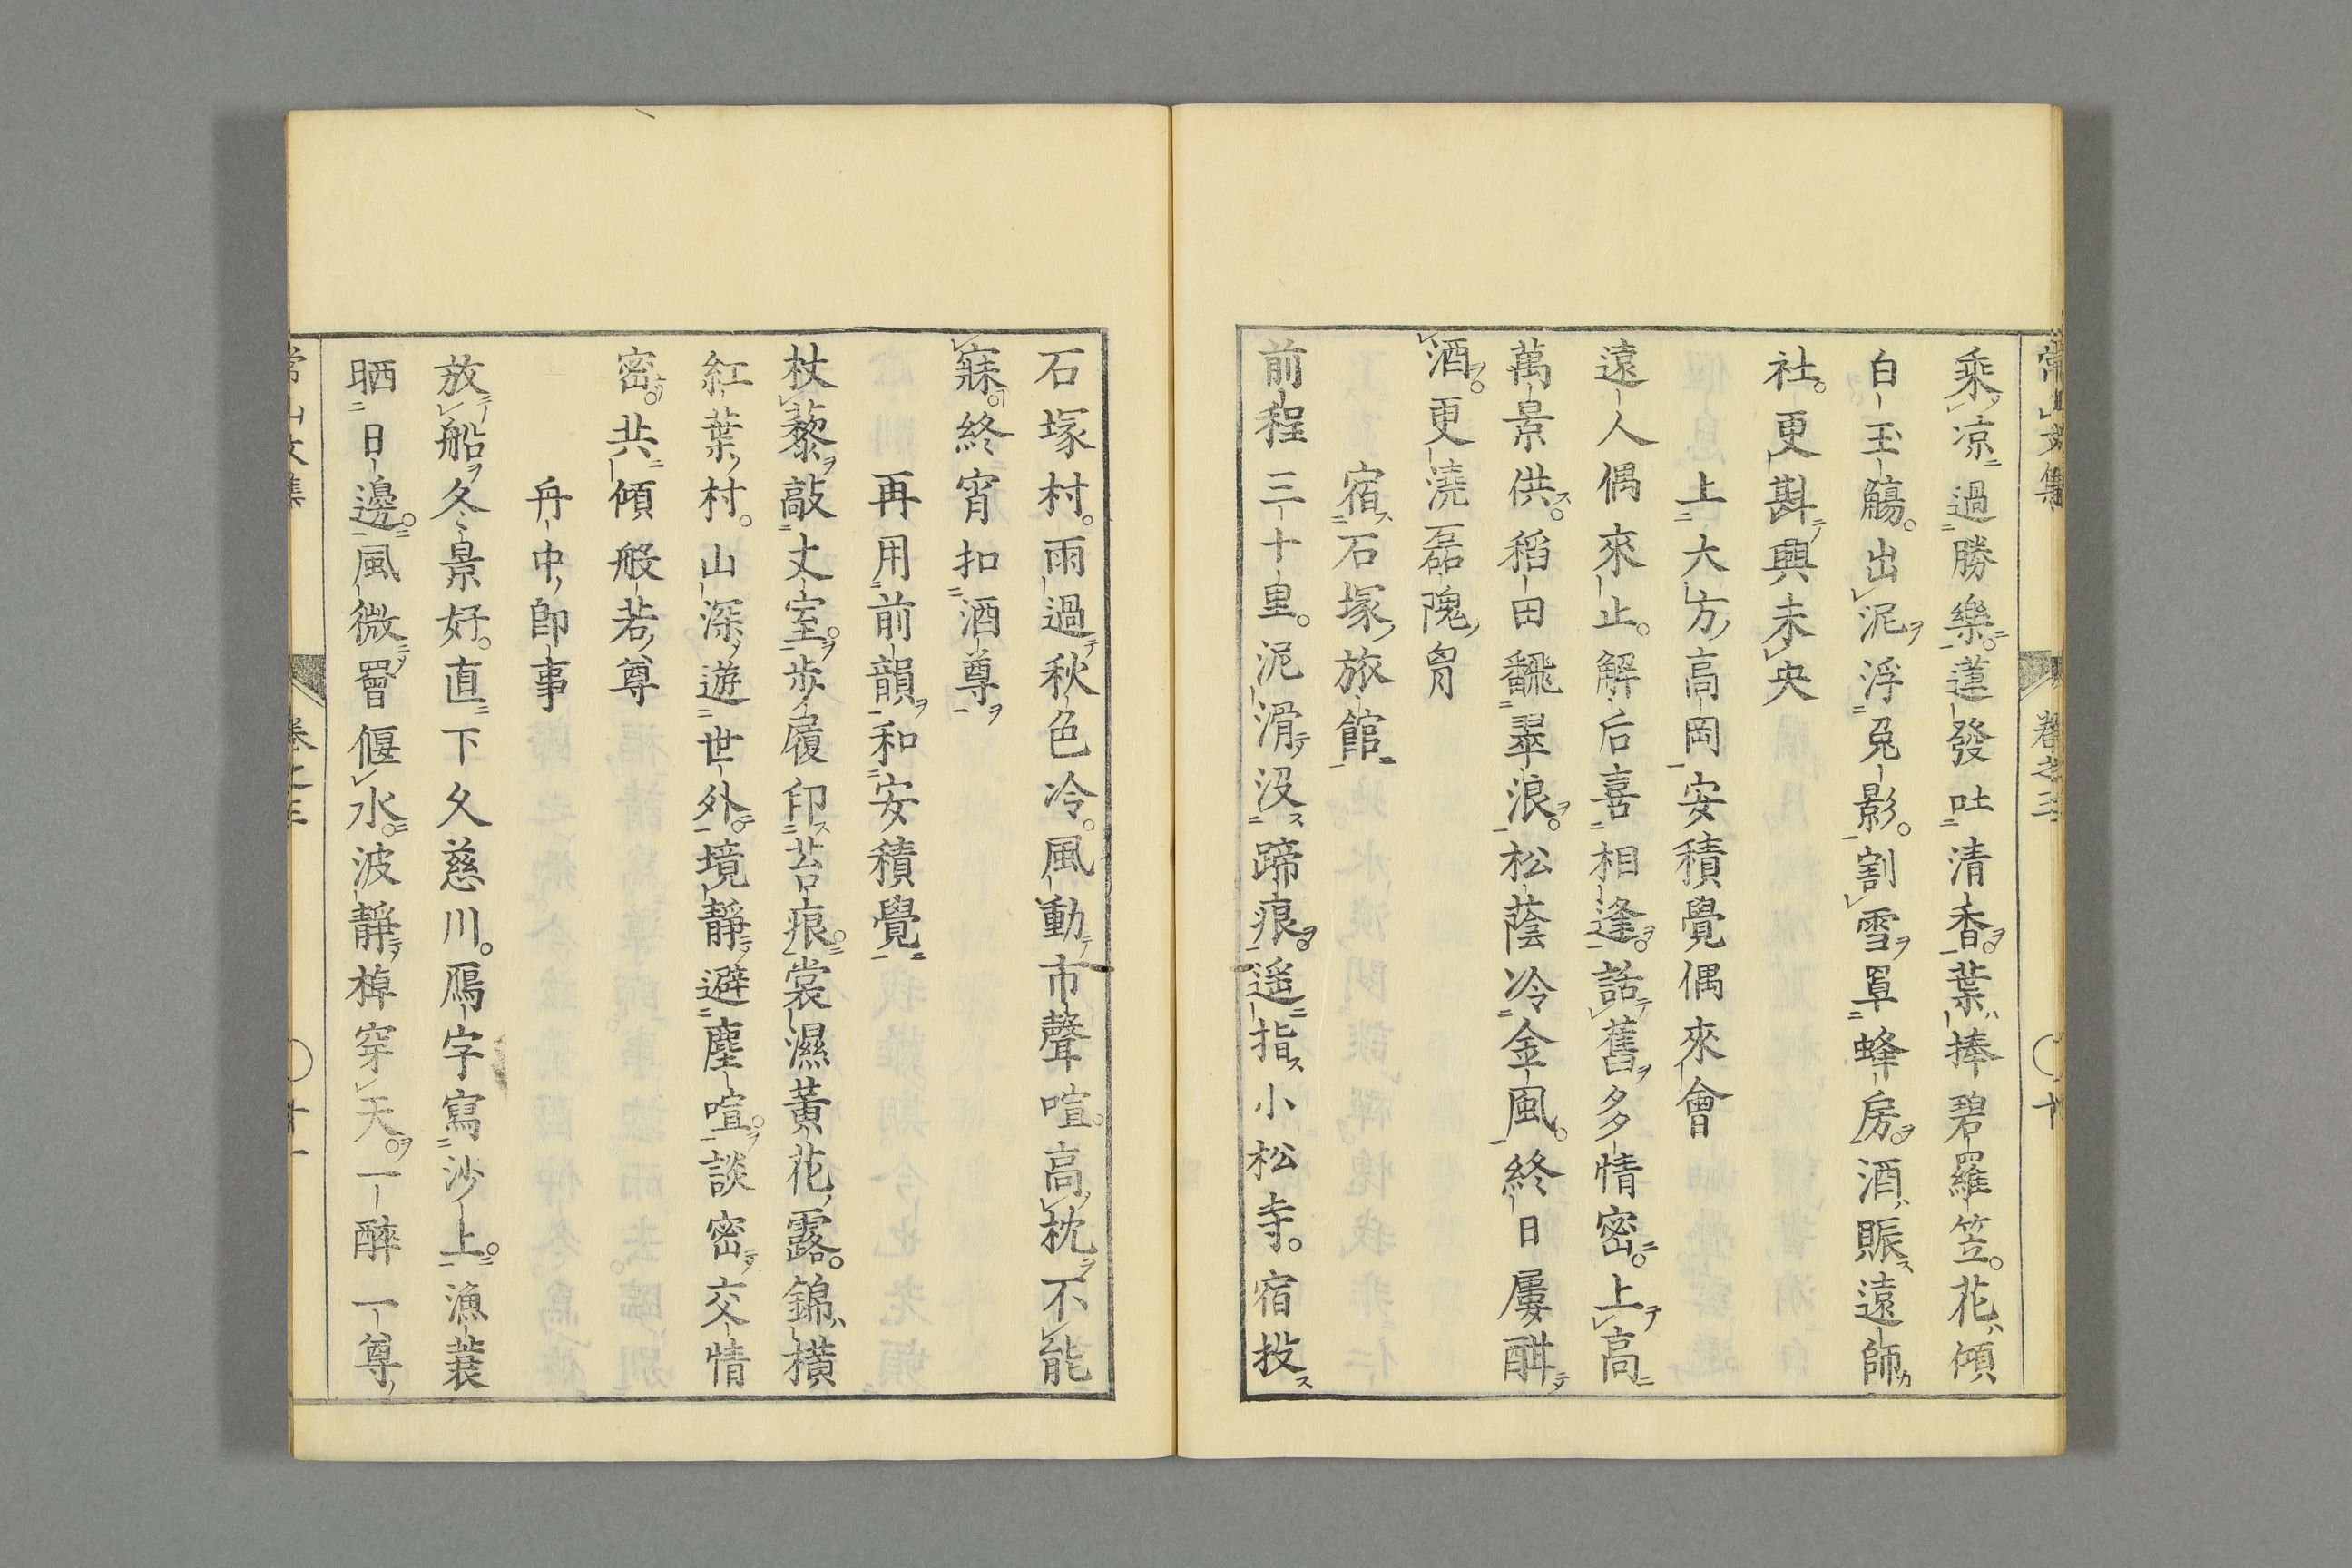 常山文集
卷之三
十
乘凉過勝樂蓮發吐清香葉捧碧羅笠花傾
白玉觴出泥浮兔影割雪罩蜂房酒賑遠師
社更斟興未央
上大方高岡安積覺偶來會
遠人偶來止解后喜相逢話舊多情密上高
萬景供稻田飜翠浪松蔭冷金風終日屢酣
酒更澆磊隗胷
宿石塚旅館
前程三十里泥滑没蹄痕遥指小松寺宿投
石塚村雨過秋色冷風動市聲喧高枕不能
寐終宵扣酒尊
再用前韻和安積覺
杖藜敲丈室歩履印苔痕裳濕黃花露錦橫
紅葉村山深遊世外境靜避塵喧談密交情
密共傾般若尊
舟中即事
放船冬景好直下久慈川鴈字寫沙上漁蓑
晒日邊風微罾偃水波靜棹穿天一醉一尊
常山文集
卷之三
十一